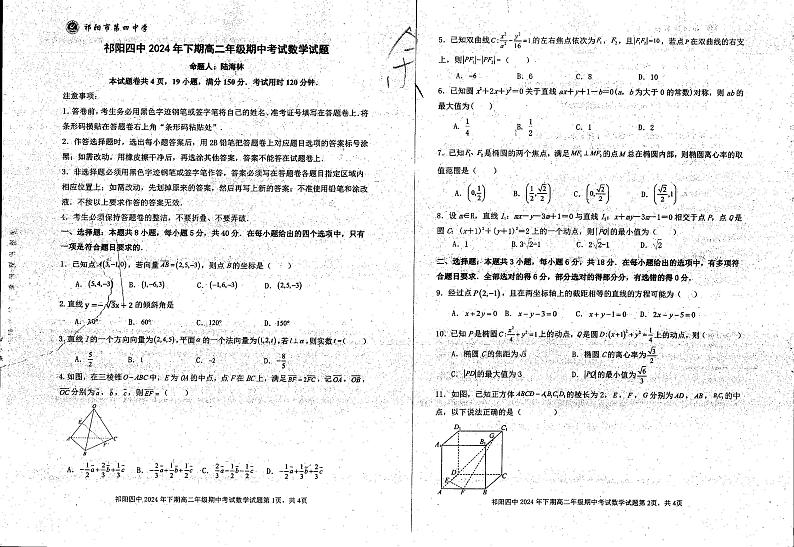 祁阳市第四中学
祁阳四中 2024 年下期高二年级期中考试数学试题
命题人：陆海林
本试题卷共 4 页，19 小题，满分 150 分．考试用时 120 分钟．
注意事项：
1．答卷前，考生务必用黑色字迹钢笔或签字笔将自己的姓名、准考证号填写在答题卷上．将
条形码横贴在答题卷右上角“条形码粘贴处”．
2．作答选择题时，选出每小题答案后，用 2B 铅笔把答题卷上对应题目选项的答案标号涂
黑；如需改动，用橡皮擦干净后，再选涂其他答案，答案不能答在试题卷上．
3．非选择题必须用黑色字迹钢笔或签字笔作答，答案必须写在答题卷各题目指定区域内
相应位置上；如需改动，先划掉原来的答案，然后再写上新的答案；不准使用铅笔和涂改
液．不按以上要求作答的答案无效．
4．考生必须保持答题卷的整洁，不要折叠、不要弄破．
一、选择题：本题共 8 小题，每小题 5 分，共 40 分．在每小题给出的四个选项中，只有
一项是符合题目要求的．
1．已知点 A(3,-1,0)，若向量 AB=(2,5,-3)，则点 B 的坐标是（ ）
A．(5,4,-3) B．(1,-6,3) C．(-1,6,-3) D．(2,5,-3)
2. 直线 y=-√3x+2 的倾斜角是
A．30° B．60° C．120° D．150°
3．直线 l 的一个方向向量为(2,4,5)，平面 α 的一个法向量为(1,2,t)，若 l⊥α，则实数 t=（ ）
A．5/2 B．1 C．-2 D．-8/5
4. 如图，在三棱锥 O-ABC 中，E 为 OA 的中点，点 F 在 BC 上，满足 BF=2FC，记 OA，OB，
OC 分别为 a，b，c，则 EF=（ ）
O
E
A
B
F
C
A．-1/2a+2/3b+1/3c B．-1/2a+1/2b+1/2c C．2/3a-1/2b-1/2c D．-1/2a+1/3b+2/3c
祁阳四中 2024 年下期高二年级期中考试数学试题第 1页，共 4页
5．已知双曲线 C: x²/a²-y²/16=1 的左右焦点依次为 F₁，F₂，且|F₁F₂|=10，若点 P 在双曲线的右支
上，则|PF₁|-|PF₂|=（ ）
A．-6 B．6 C．8 D．10
6．已知圆 x²+2x+y²=0 关于直线 ax+y+1-b=0(a，b 为大于 0 的常数)对称，则 ab 的
最大值为（ ）
A．1/4 B．1/2 C．1 D．2
7．已知 F₁、F₂ 是椭圆的两个焦点，满足 MF₁⊥MF₂ 的点 M 总在椭圆内部，则椭圆离心率的取
值范围是（ ）
A．(0,1/2) B．(1/2,√2/2) C．(0,√2/2) D．(√2/2,1)
8．设 a∈R，直线 l₁：ax-y-3a+1=0 与直线 l₂：x+ay-3a-1=0 相交于点 P，点 Q 是
圆 C：(x+1)²+(y+1)²=2 上的一个动点，则|PQ|的最小值为（ ）
A．1 B. 3√2-1 C．2√2-1 D．√2
二、选择题：本题共 3 小题，每小题 6 分，共 18 分．在每小题给出的选项中，有多项符
合题目要求．全部选对的得 6 分，部分选对的得部分分，有选错的得 0 分．
9．经过点 P(2,-1)，且在两坐标轴上的截距相等的直线的方程可能为（ ）
A．x+2y=0 B．x-y-3=0 C．x+y-1=0 D．2x-y-5=0
10．已知 P 是椭圆 C: x²/4+y²=1 上的动点，Q 是圆 D:(x+1)²+y²=1/4 上的动点，则（ ）
A．椭圆 C 的焦距为√3 B．椭圆 C 的离心率为√3/2
C．|PD|的最大值为 3 D．|PD|的最小值为√6/3
11．如图，已知正方体 ABCD-A₁B₁C₁D₁ 的棱长为 2，E，F，G 分别为 AD，AB，B₁C₁ 的中
点，以下说法正确的是（ ）
D₁
C₁
G
A₁
B₁
D
C
E
A
F
B
祁阳四中 2024 年下期高二年级期中考试数学试题第 2页，共 4页